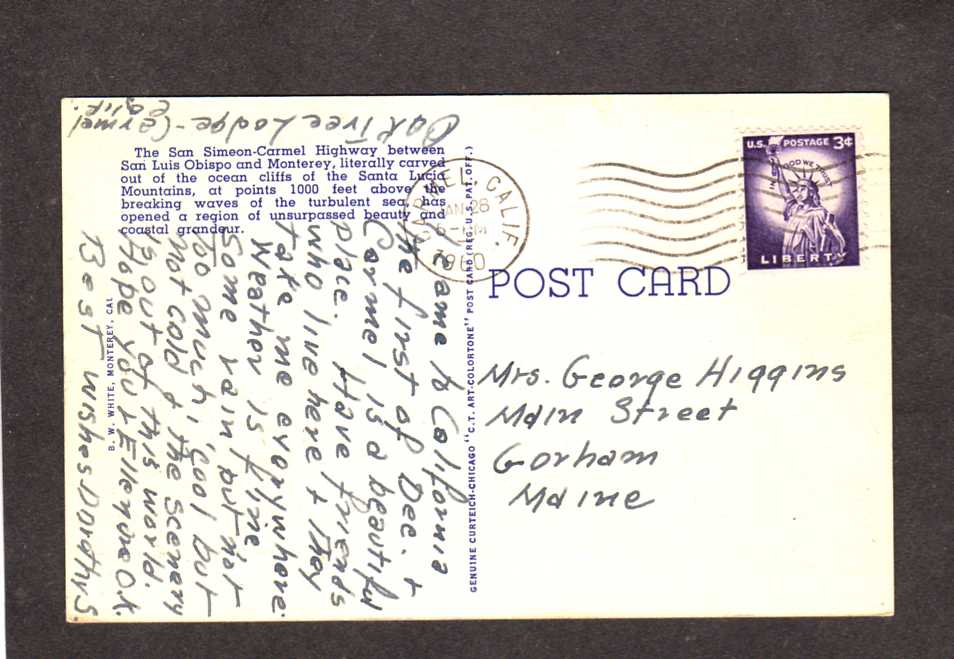 Oak Tree Lodge - Carmel
Calif.
The San Simeon-Carmel Highway between
San Luis Obispo and Monterey, literally carved
out of the ocean cliffs of the Santa Lucia
Mountains, at points 1000 feet above the
breaking waves of the turbulent sea, has
opened a region of unsurpassed beauty and
coastal grandeur.
I came to California
the first of Dec. +
Carmel is a beautiful
place. Have friends
who live here + they
take me everywhere.
Weather is fine
Some rain but not
too much, cool but
not cold + the scenery
is out of this world.
Hope you + Ellen are O.K.
Best wishes Dorothy S.
B. W. WHITE, MONTEREY, CAL
GENUINE CURTEICH-CHICAGO "C.T. ART-COLORTONE" POST CARD (REG. U.S. PAT. OFF.)
CARMEL, CALIF.
JAN 26
5 - PM
1960
U.S. POSTAGE 3¢
IN GOD WE TRUST
LIBERTY
POST CARD
Mrs. George Higgins
Main Street
Gorham
Maine